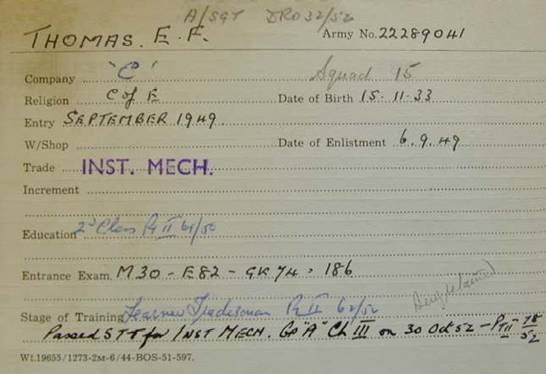 A/SGT DRO 32/52
THOMAS. E. F. Army No. 22289041
Company 'C' Squad 15
Religion C of E Date of Birth 15-11-33
Entry SEPTEMBER 1949
W/Shop Date of Enlistment 6.9.49
Trade INST. MECH.
Increment
Education 2nd Class Pt II 61/50
Entrance Exam. M30 - E82 - GK74 = 186
Stage of Training Learner Tradesman Pt II 62/52
Passed STT for INST MECH. Gp "A" Cl III on 30 Oct 52 - PTII 78/52
Wt.19655/1273-2M-6/44-BOS-51-597.